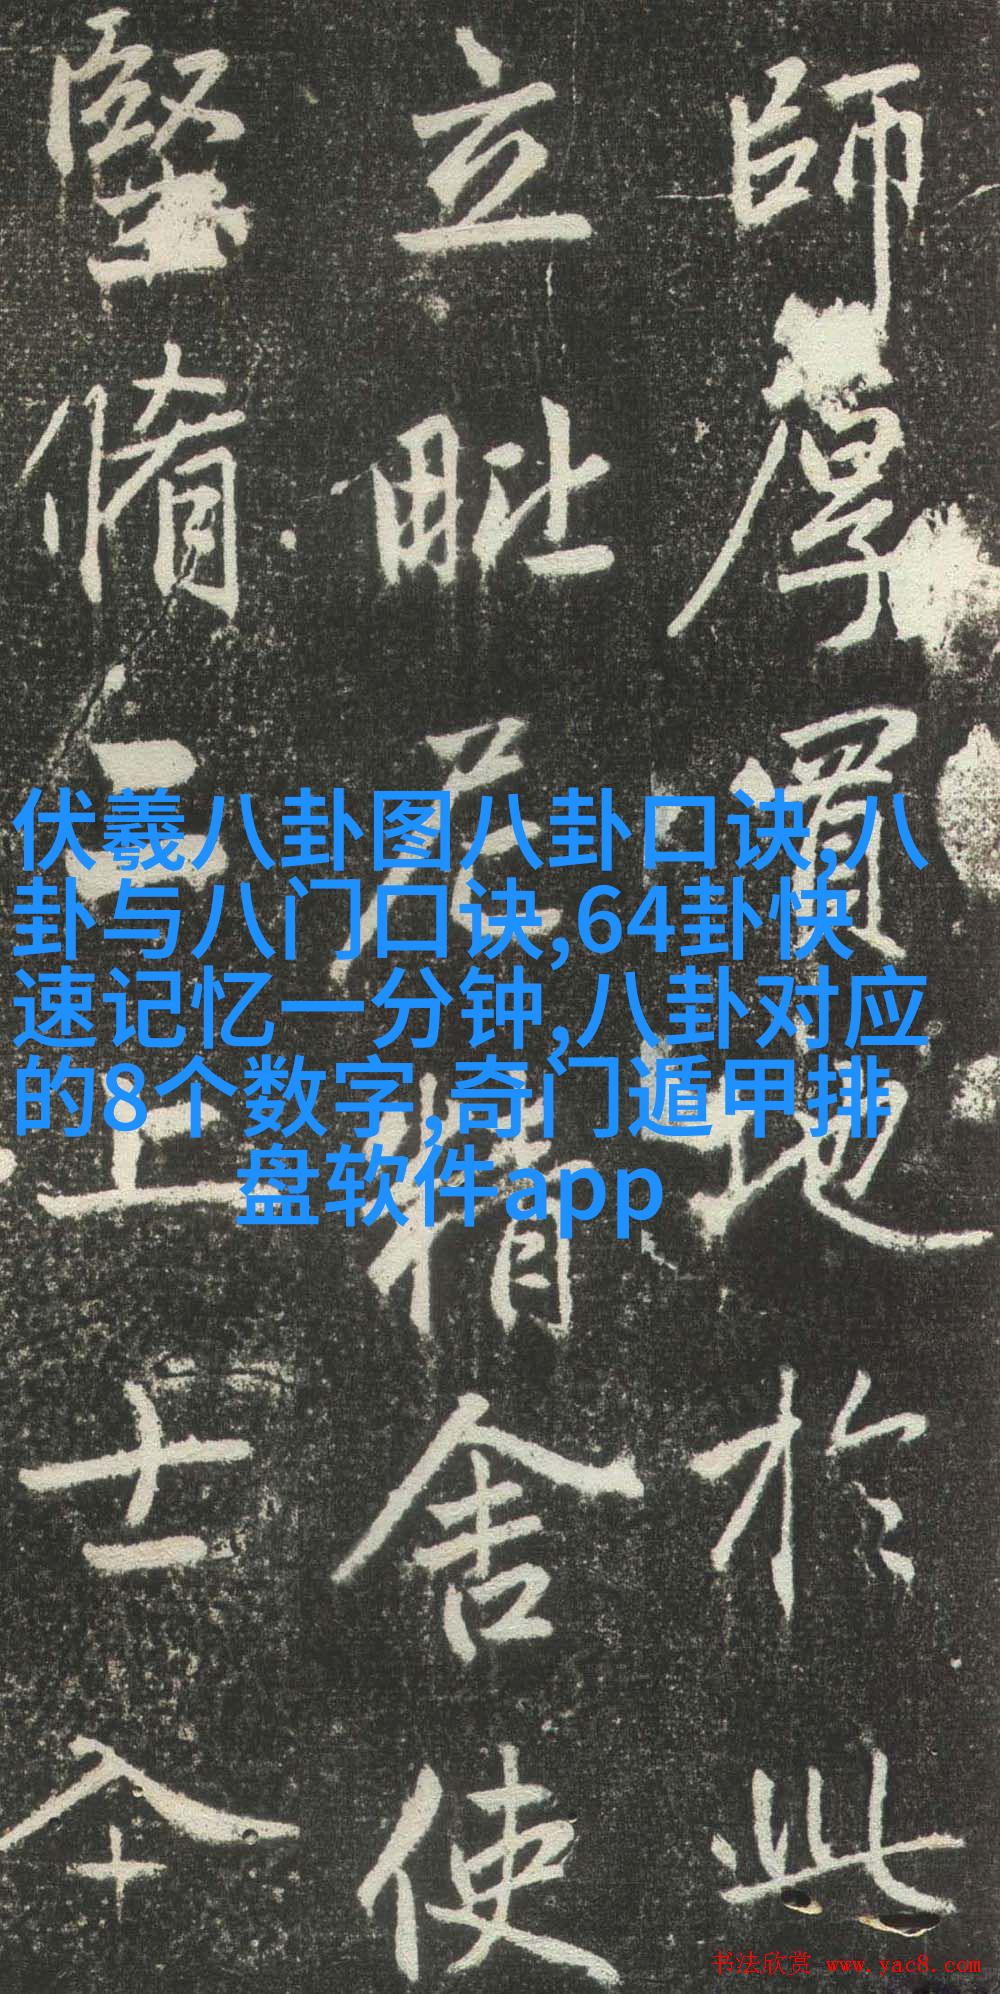 師厚買地於此
立毗尼精舍使
堅脩三上士
伏羲八卦图八卦口诀,八
卦与八门口诀,64卦快
速记忆一分钟,八卦对应
的8个数字,奇门遁甲排
盘软件app
书法欣赏 www.yac8.com